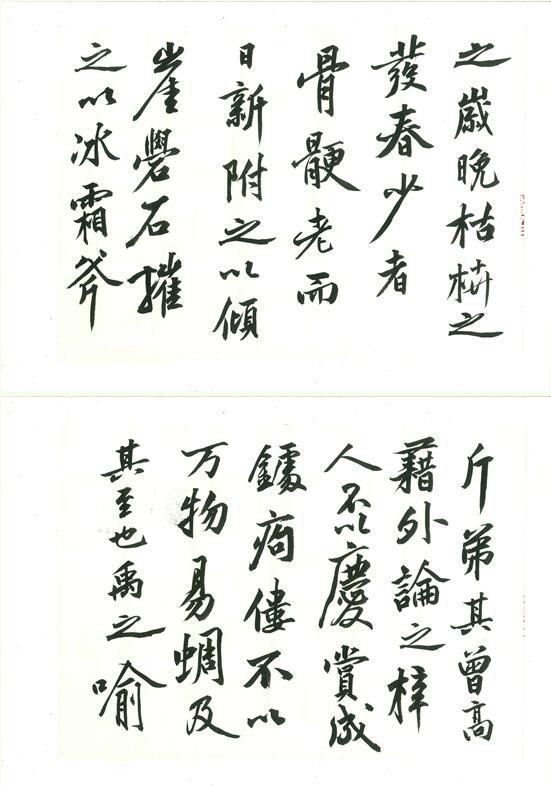 之歲晚枯枿之
發春少者
骨骾老而
日新附之以傾
崖礐石摧
之以冰霜斧
斤弟其曾高
藉外論之梓
人不以慶賞成
鐻痀僂不以
万物易蜩及
其至也禹之喻